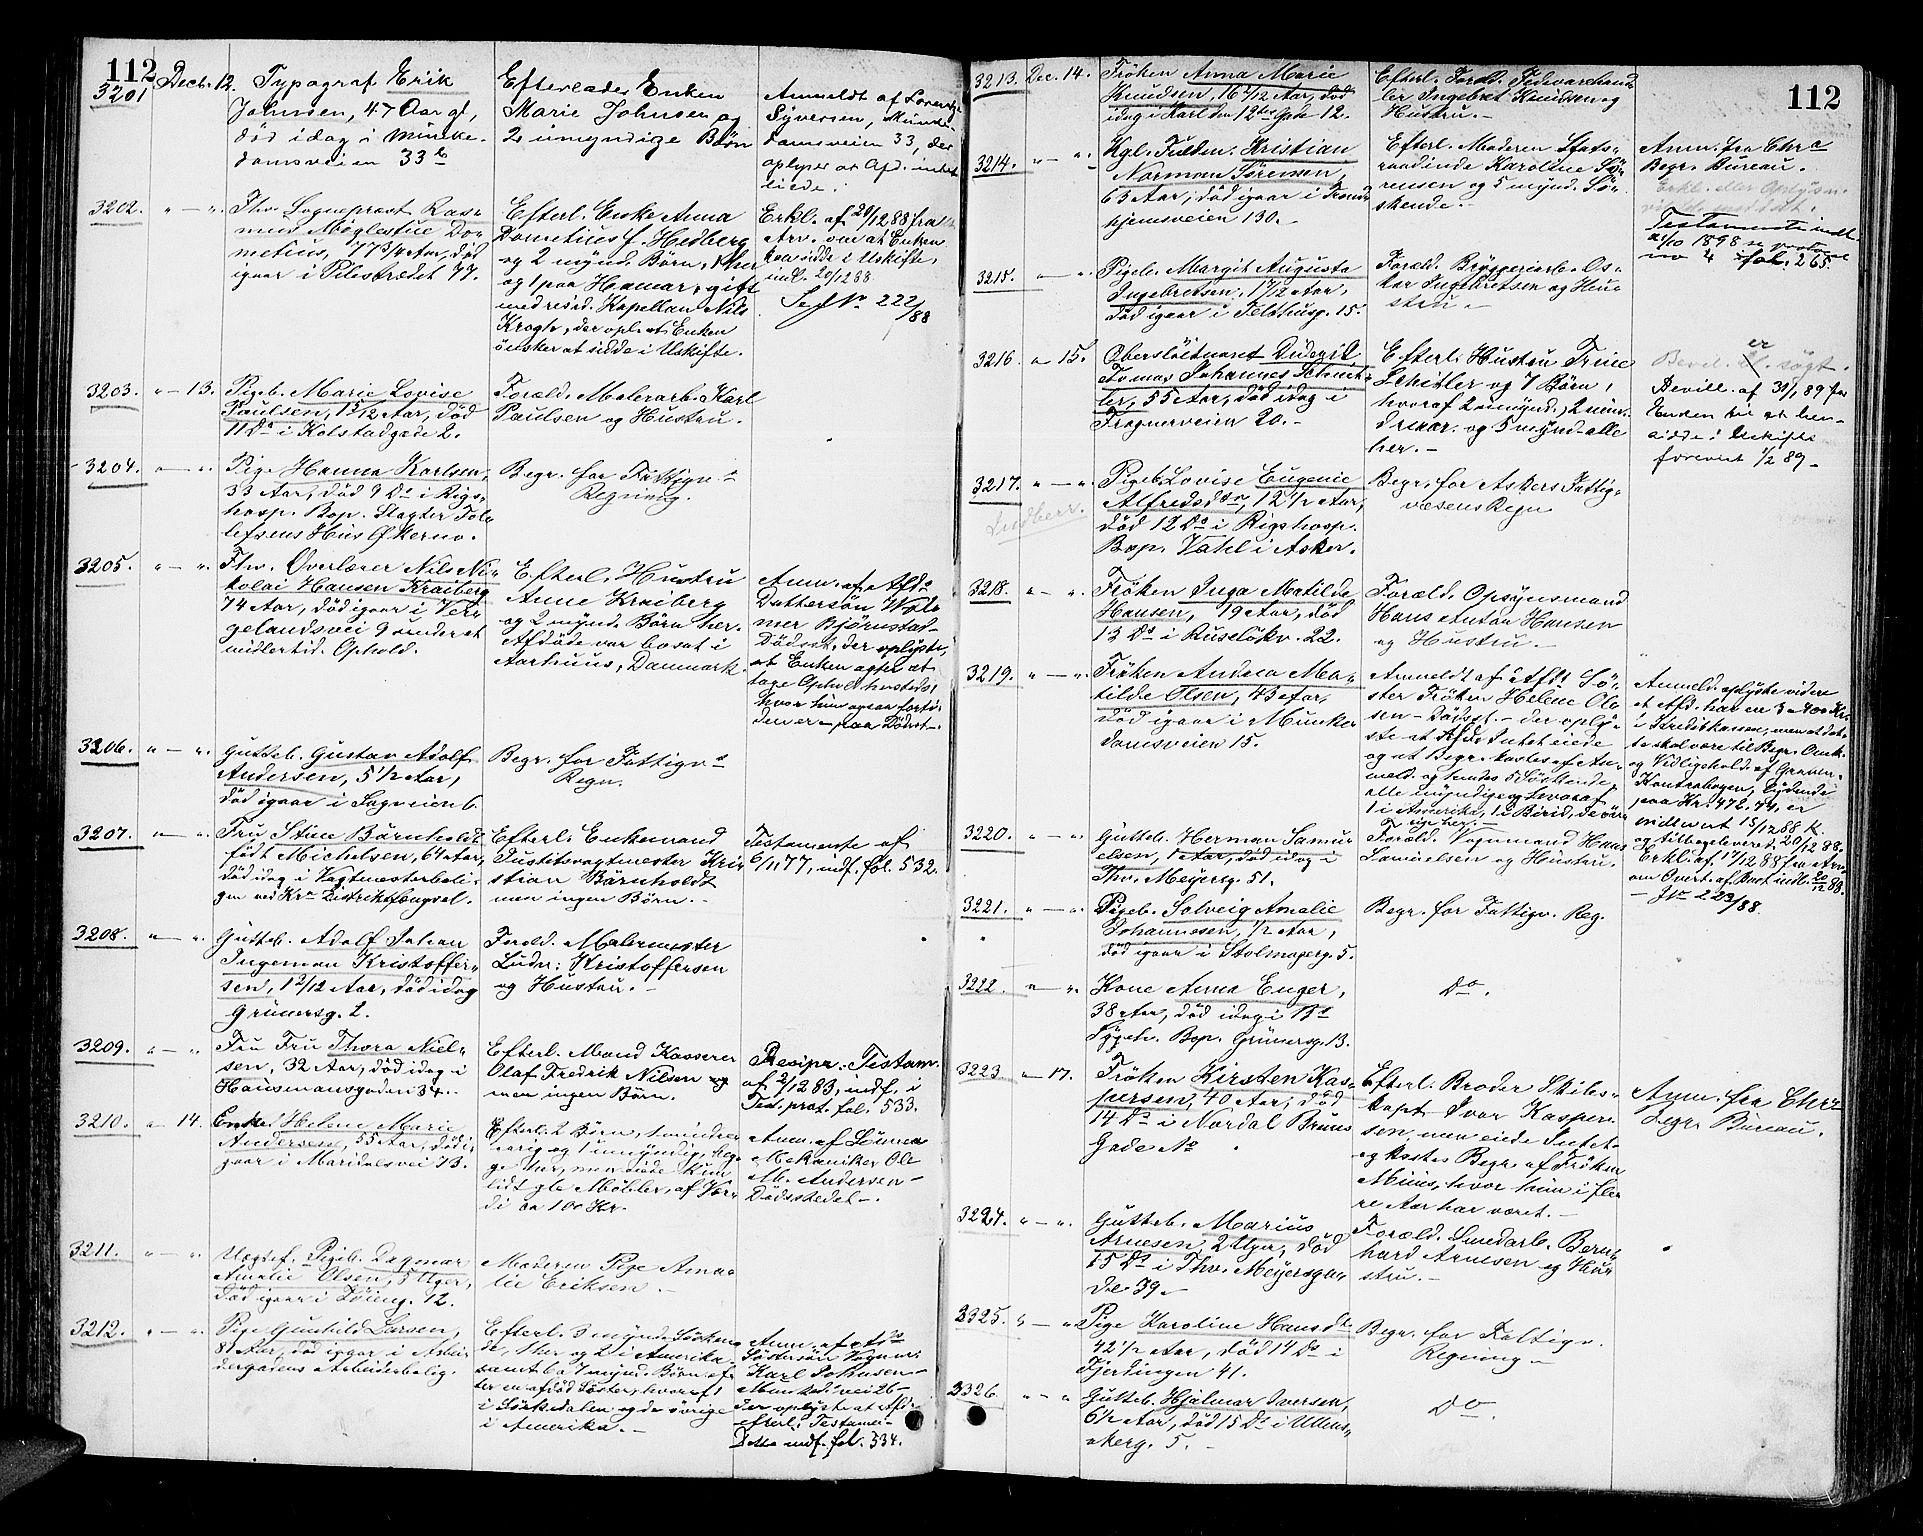 112
3201
Decb. 12.
Typograf Erik
Johnsen, 47 Aar gl,
död idag i Munke-
damsveien 33 b
Efterlader Enken
Marie Johnsen og
2 umyndige Børn
Anmeldt af Lorentz
Syversen, Munke-
damsveien 33, der
oplyser at Afd. intet
eiede.
3202. " — ".
Fhv. Sogneprest Ras-
mus Möglestue Do-
metius, 77 3/4 Aar, död
igaar i Pilestrædet 77.
Efterl. Enke Anna
Dometius f. Hedberg
og 2 mynd. Børn, 1 her
og 1 paa Hamar, gift
med resid. Kapellan Nils
Krogh, der opl. at Enken
önsker at sidde i Uskifte.
Erkl. af 20/12 88 fra
Arv. om at Enken
kan sidde i Uskifte,
indl. 20/12 88
Se J No 222/88
3203. " — 13.
Pigeb. Marie Lovise
Paulsen, 1 5/12 Aar, död
11 Ds i Kolstadgade 2.
Foræld. Malerarb. Karl
Paulsen og Hustru.
3204. " — ".
Pige Hanna Karlsen,
33 Aar, död 9 Ds i Rigs-
hosp. Bop. Slagter Tol-
lefsens Hus Økernv.
Begr. for Fattigv.s
Regning.
3205. " — ".
Fhv. Overlærer Nils Ni-
kolai Hansen Kraiberg
74 Aar, död igaar i Ver-
gelandsvei 9 under et
midlertid. Ophold.
Efterl. Hustru
Anne Kraiberg
og 2 mynd. Børn her.
Afdöde var bosat i
Aarhuus, Danmark.
Anm. af Afd.s
Dattersön Wol-
mer Björnstad
Dödsst., der oplyste,
at Enken agter at
tage Ophol husteds,
hvor hun ogsaa fortö-
den er — paa Dödsst.
3206. " — ".
Gutteb. Gustav Adolf
Andersen, 5 1/2 Aar,
död igaar i Sagveien 6.
Begr. for Fattigv.s
Regn.
3207. " — ".
Fru Stine Børnholdt
født Michelsen, 64 Aar,
död idag i Vagtmesterboli-
gen ved Kra Distriktsfængsel.
Efterl. Enkemand
Justitsvagtmester Kri-
stian Børnholdt
men ingen Børn.
Testamente af
6/1 77, indf. fol. 532.
3208. " — ".
Gutteb. Adolf Johan
Ingeman Kristoffer-
sen, 1 2/12 Aar, död idag
Grünersg. 2.
Foræld. Malermester
Ludv: Kristoffersen
og Hustru.
3209. " — ".
Fru Fru Thora Niel-
sen, 32 Aar, död idag i
Hausmansgaden 34.
Efterl. Mand Kasserer
Olaf Fredrik Nilsen og
men ingen Børn.
Recipr. Testam.
af 3/12 83, indf. i
Test. prot. fol. 533.
3210. " — 14.
Enke Helene Marie
Andersen, 55 Aar, död i-
gaar i Maridalsvei 73.
Efterl. 2 Børn, 1 mindre-
aarig og 1 umyndig, beg-
ge her, men eiede kun
lidt gle Møbler, af Vær-
di ca 100 Kr.
Anm. af Sønnen
Mekaniker Ole
M. Andersen
Dödsstedet.
3211. " — ".
Uægtef. Pigeb. Dagmar
Amalie Olsen, 5 Uger,
död igaar i Töieng. 12.
Moderen Pige Ama-
lie Eriksen.
3212. " — ".
Pige Gunhild Larsen,
81 Aar, död igaar i Arbei-
dergadens Arbeiderbolig.
Efterl. 3 mynd. Söskend-
de, 1 her og 2 i Amerika,
samt 6 a 7 mynd. Børn ef-
ter en afdöd Söster, hvoraf 1
i Sörkedalen og de övrige
i Amerika.
Anm. af Afd.s
Söstersön Vognm.
Karl Johnsen
Munkedsvei 26
der oplyste at Afd.
efterl. Testamen-
Dette indf. fol. 534.
112
3213. Dec. 14.
Fröken Anna Marie
Knudsen, 16 5/12 Aar, död
idag i Karl den 12tes Gde 12.
Efterl. Foræld. Fedevarehand-
ler Ingebret Knudsen og
Hustru.
3214. " — ".
Kgl. Fuldm. Kristian
Norman Sørensen,
63 Aar, död igaar i Trond-
hjemsveien 130.
Efterl. Moderen Stats-
raadinde Karoline Sö-
rensen og 5 mynd. Sö-
skende.
Anm. fra Chra
Begr. Bureau.
Erkl. eller Oplysn.
vilde meddelt.
Testamente indl.
1898 se protoc
no 4 fol. 265.
3215. " — ".
Pigeb. Margit Augusta
Ingebretsen, 1 7/12 Aar,
död igaar i Felthusg. 15.
Foræld. Bryggeriarb. Os-
kar Ingebretsen og Hu-
stru.
3216. " 15.
Oberslöitnant Diderik
Tomas Johannes Schnit-
ler, 55 Aar, död idag i
Frognerveien 20.
Efterl. Hustru Trine
Schitler og 7 Børn,
hvoraf 2 umynd., 2 min-
dreaar. og 5 mynd. alle
her.
Bevil. er søgt.
Beville. af 31/1 89 for
Enken til at hen-
sidde i Uskifte
forevist 1/2 89
3217. " — ".
Ludberr.
Pigeb. Lovise Eugenie
Alfredsdtr, 12 1/2 Aar,
död 12 Ds i Rigshosp.
Bop. Vahl i Asker.
Begr. for Askers Fattig-
væsens Regn
3218. " — ".
Fröken Inga Matilde
Hansen, 19 Aar, död
13 Ds i Ruselökv. 22.
Foræld. Opsynsmand
Hans Anton Hansen
og Hustru.
3219. " — ".
Fröken Andrea Ma-
tilde Olsen, 43 Aar,
död igaar i Munke-
damsveien 15.
Anmeldt af Afds Sö-
ster Fröken Helene Ol-
sen — Dödsst. — der oply-
ste at Afd. Intet eiede
og at Begr. kostes af An-
meld. og hendes 5 Söskende,
alle myndige og hvoraf
1 i Amerika, 1 i Birid, de öv-
rige her.
Anmeld. oplyste videre
at Afd. har en 3 a 400 Kr.
i Kreditkassen, men at det-
te skal være til Begr. Omk.
og Vidligehold. af Graven.
Kontrabogen, lydende
paa Kr. 472.74, er
indlevert 15/12 88 K.
og tilbageleveret 20/12 88.
Erkl. af 17/12 88 fra Arv.
om Overt. af Boet indl. 20/12 88.
— Jno 223/88
3220. " — ".
Gutteb. Herman Samu-
elsen, 1 Aar, död idag i
Thv. Meyersg. 51.
Foræld. Vognmand Hans
Samuelsen og Hustru.
3221. " — ".
Pigeb. Solveig Amalie
Johannesen, 1/2 Aar,
död igaar i Stolmagerg. 5.
Begr. for Fattigv. Reg.
3222. " — ".
Kone Anna Enger,
38 Aar, död idag i Bs
Sygeh. Bop. Grünersg. 13.
Do.
3223 " 17.
Fröken Kirsten Kas-
persen, 40 Aar, död
14 Ds i Nordal Bruns
Gade No
Efterl. Broder Skibs-
kapt. Ivar Kasper-
sen, men eiede Intet
og kostes Begr. af Fröken
Münis, hvor hun i fle-
re Aar har været.
Anm. fra Chra
Begr. Bureau.
3224. " — ".
Gutteb. Marius
Arnesen, 2 Uger, död
15 Ds i Thv. Meyersga-
de 39.
Foræld. Smedarb. Bern-
hard Arnesen og Hu-
stru.
3325. " — ".
Pige Karoline Hansdtr
42 1/2 Aar, död 14 Ds i
Fjerdingen 41.
Begr. for Fattigv.
Regning
3326. " — "
Gutteb. Hjalmar Iversen,
6 1/2 Aar, död 15 Ds i Ullens-
akerg. 5.
Do.